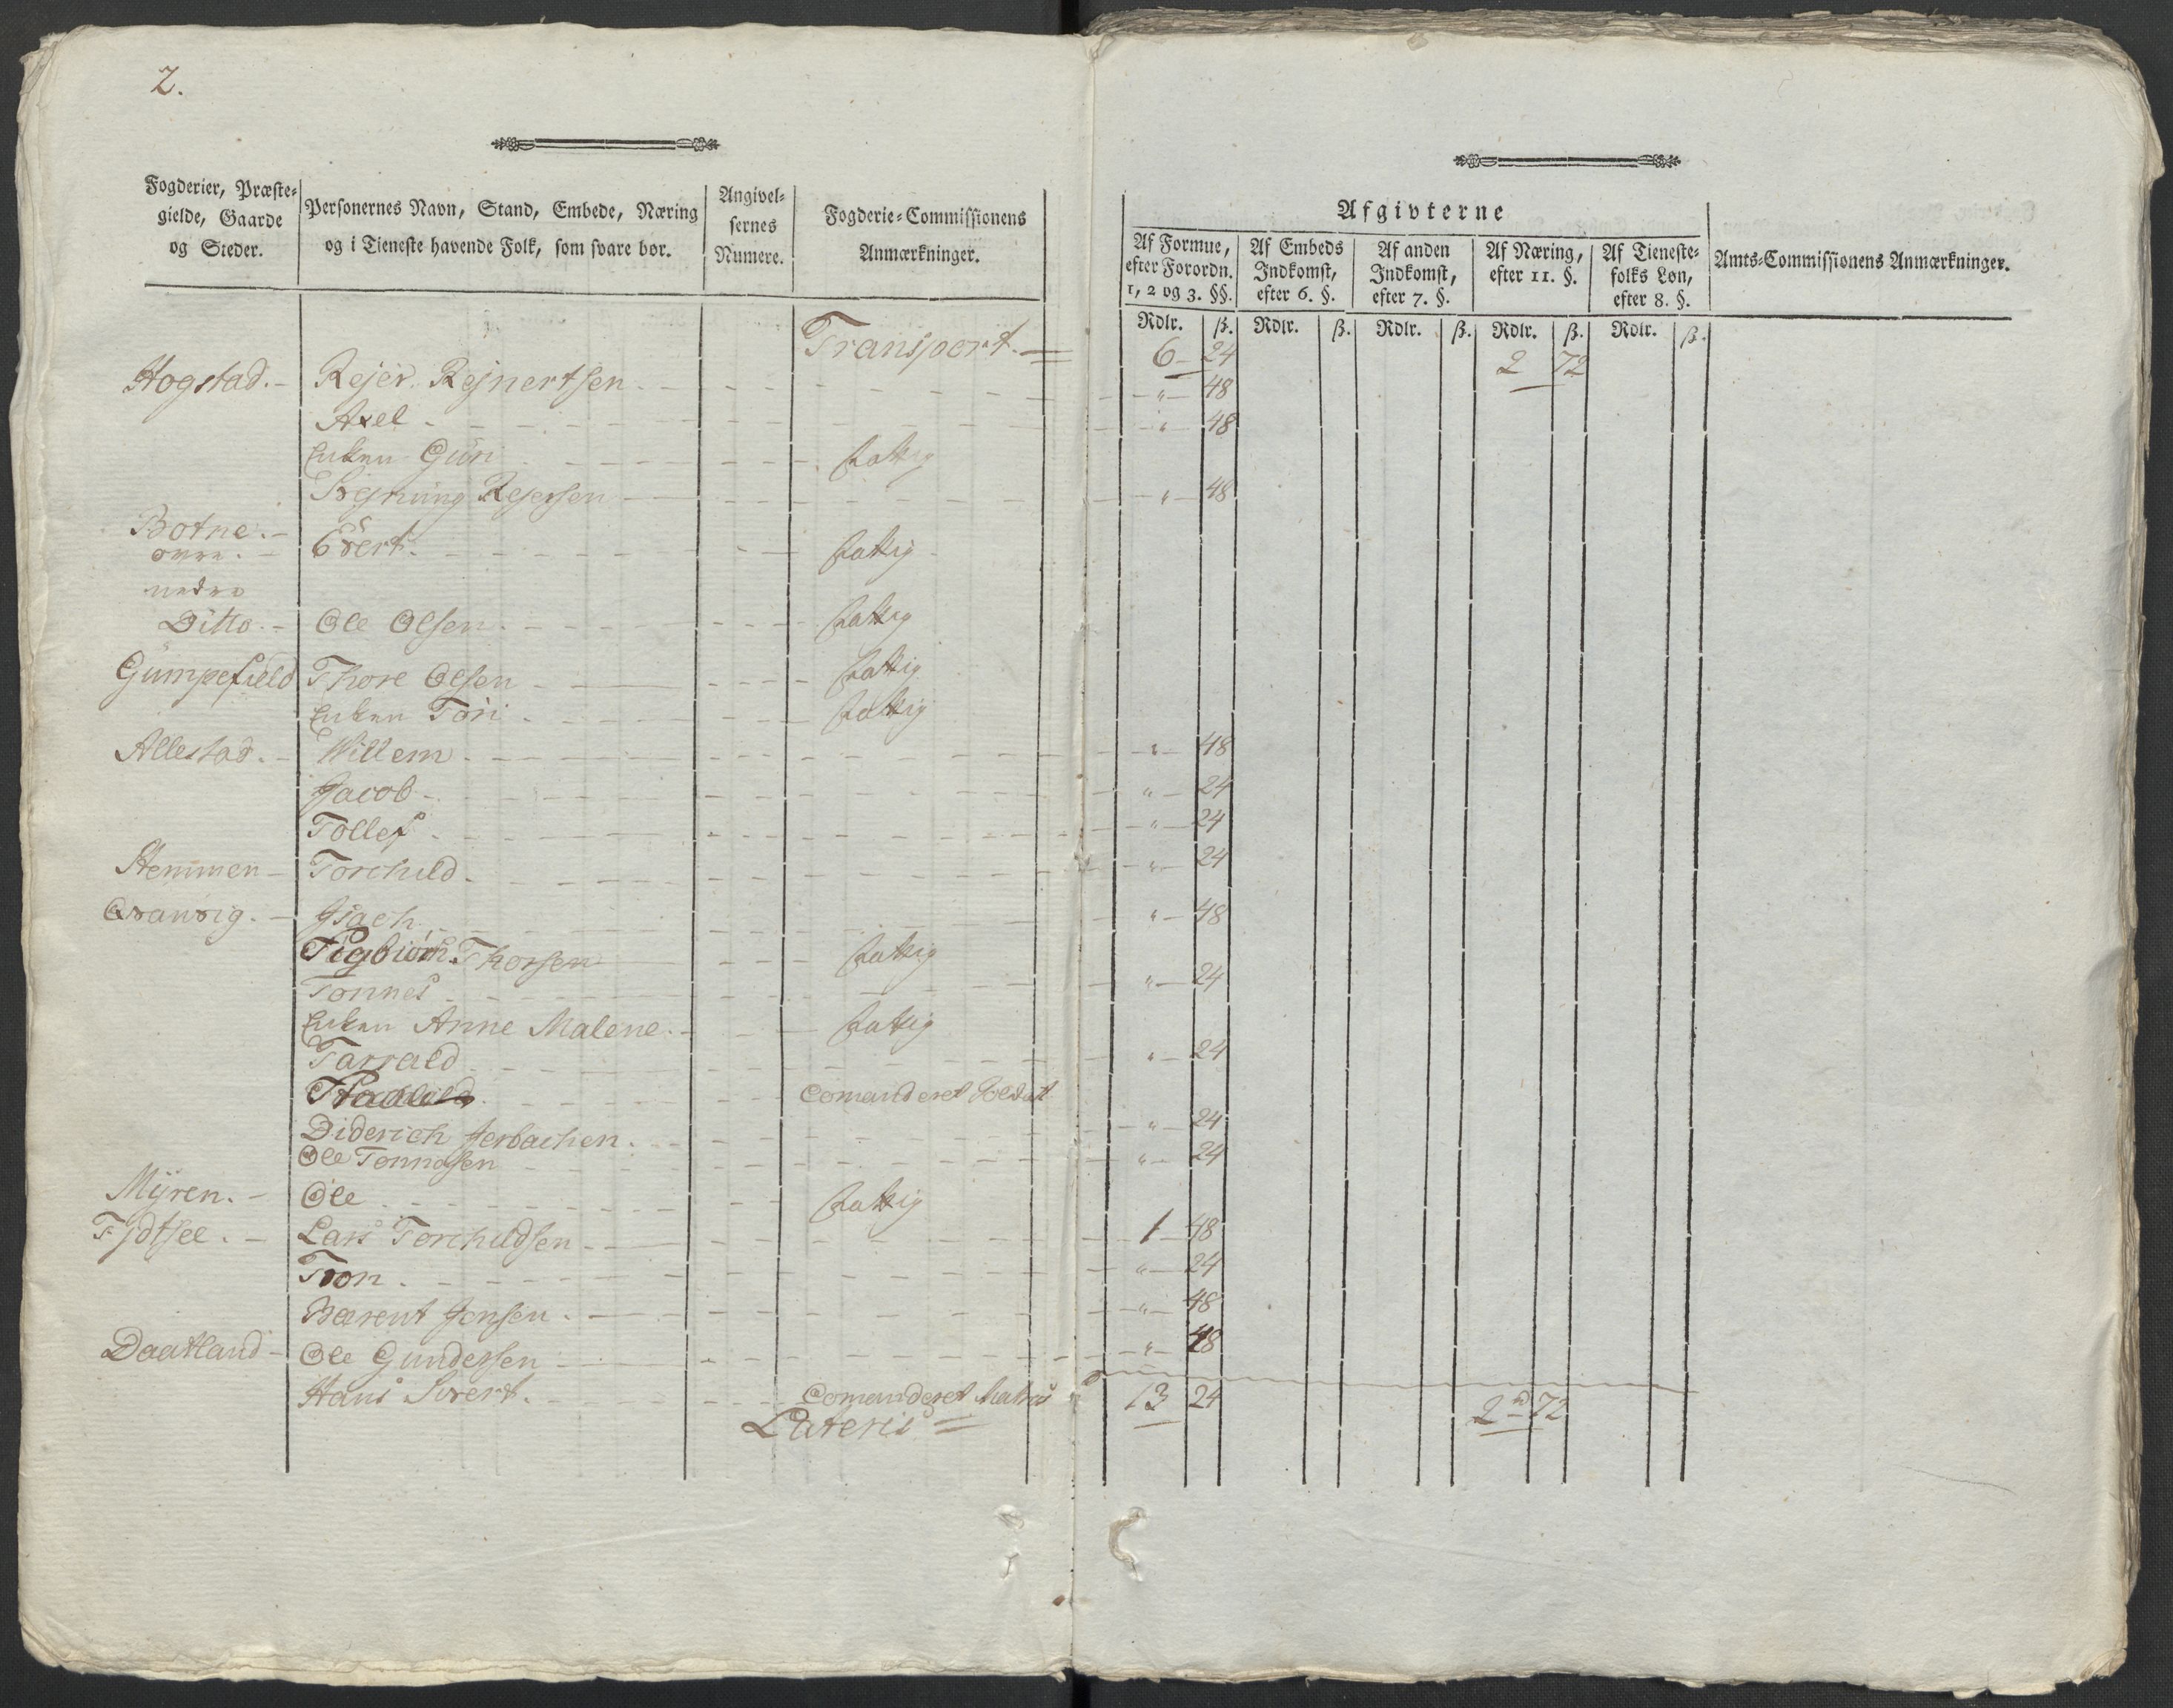 2.
Fogderier, Præste-
gielde, Gaarde
og Steder.
Personernes Navn, Stand, Embede, Næring
og i Tieneste havende Folk, som svare bør.
Angivel-
sernes
Numere.
Fogderie-Commissionens
Anmærkninger.
Afgivterne
Af Formue,
efter Forordn.
1, 2 og 3. §§.
Af Embeds
Indkomst,
efter 6. §.
Af anden
Indkomst,
efter 7. §.
Af Næring,
efter 11. §.
Af Tieneste-
folks Løn,
efter 8. §.
Amts-Commissionens Anmærkninger.
Rdlr. ß. Rdlr. ß. Rdlr. ß. Rdlr. ß. Rdlr. ß.
Transport. 6 24 2 72
Hogstad. Rejer Rejnertsen " 48
Axel " 48
Enken Guri fattig
Rejersen " 48
Botne.
øvre. Evert. fattig
nedre
Ditto. Ole Olsen fattig
Gumpefield Thore Olsen fattig
Enken Tori fattig
Allestad. Willem " 48
Jacob " 24
Tollef " 24
Hemmen Torchild " 24
Qvanvig. Isach " 48
Sigbiörn Thorsen fattig
Tonnes " 24
Enken Anne Malene fattig
Tarrald " 24
Comanderet Soldat
Diderich Jerbachen. " 24
Ole Tonnesen " 24
Myren. Ole fattig
Fydtsee. Lars Torchildsen 1 48
Tron. " 24
Barent Jensen. " 48
Daatland Ole Gundersen " 48
Hans Sivert. Comanderet Matros
Lateris 13 24 2 72